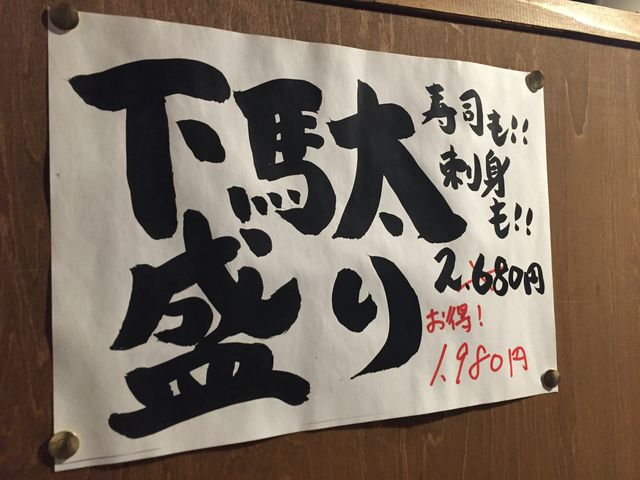 下駄
盛り
寿司も!!
刺身
も!!
2,680円
お得!
1,980円